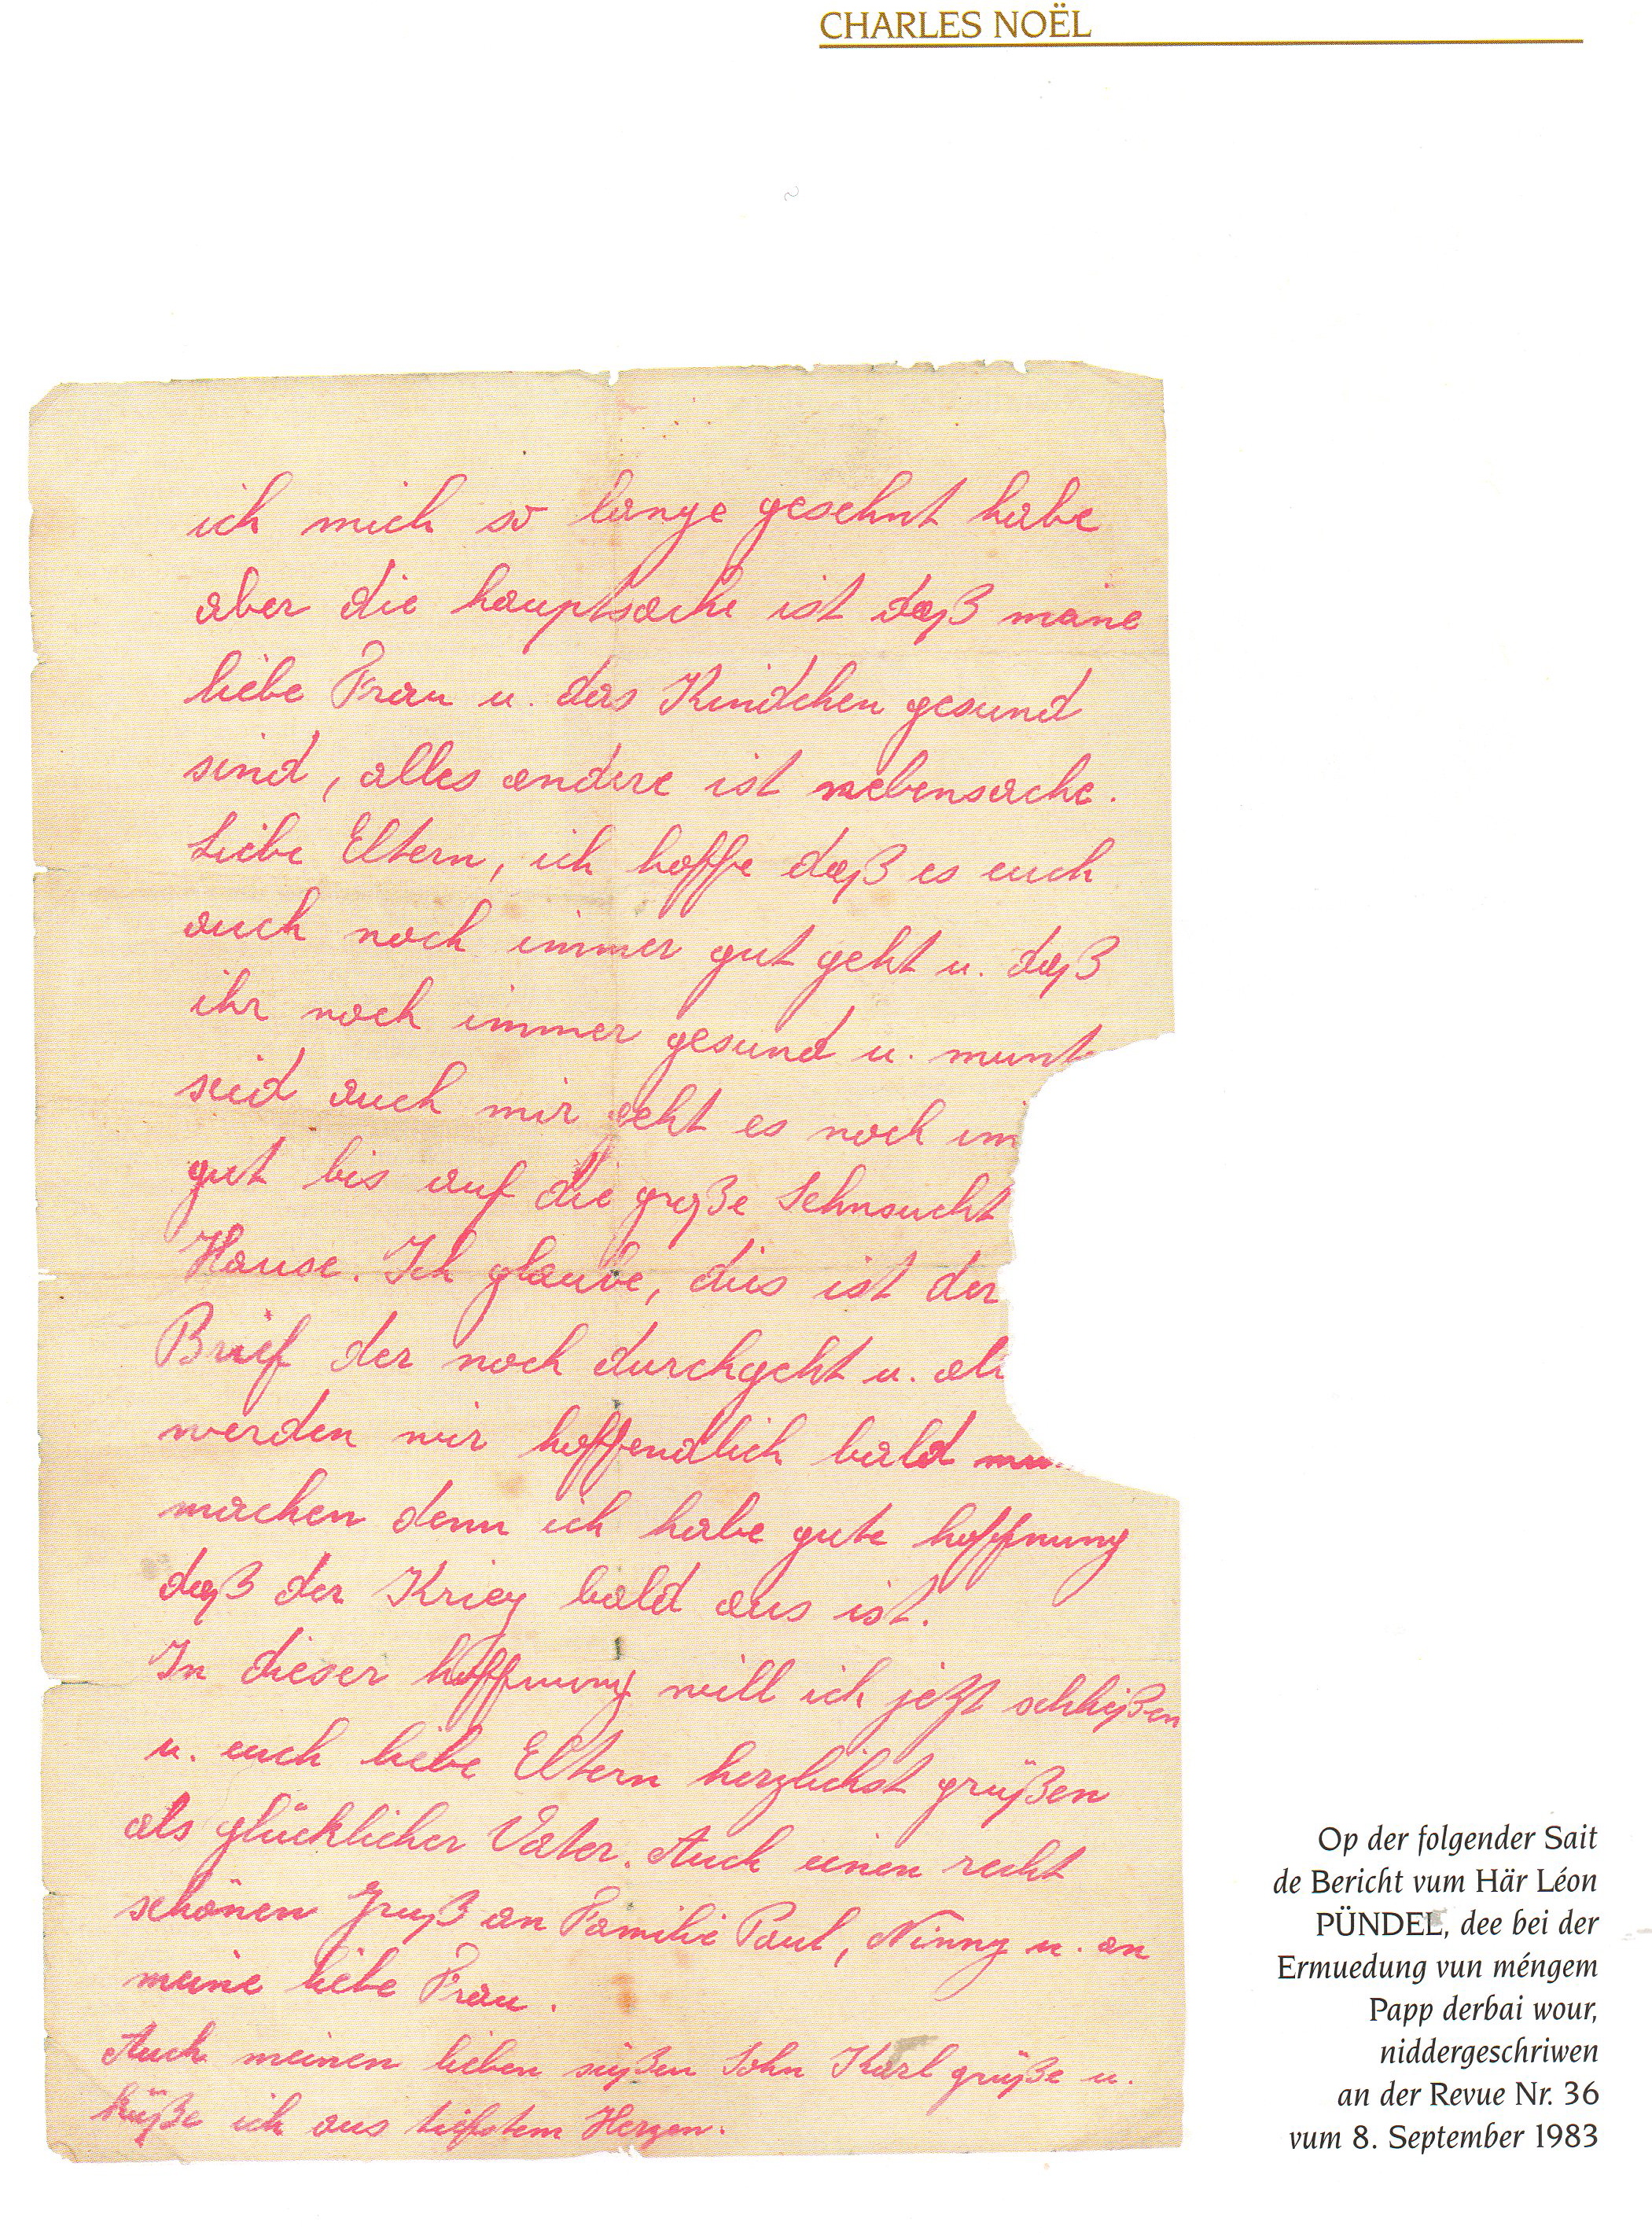 CHARLES NOËL
ich mich so lange gesehnt habe
aber die hauptsache ist daß meine
liebe Frau u. das Kindchen gesund
sind, alles andere ist nebensache.
Liebe Eltern, ich hoffe daß es euch
auch noch immer gut geht u. daß
ihr noch immer gesund u. munt
seid auch mir geht es noch im
gut bis auf die große Sehnsucht
Hause. Ich glaube, dies ist der
Brief der noch durchgeht u. als
werden wir hoffendlich bald
machen denn ich habe gute hoffnung
daß der Krieg bald aus ist.
In dieser hoffnung will ich jetzt schließen
u. euch liebe Eltern herzlichst grüßen
als glücklicher Vater. Auch einen recht
schönen Gruß an Familie Paul, Ninny u. an
meine liebe Frau.
Auch meinen lieben süßen Sohn Karl grüße u.
küße ich aus tiefstem Herzen.
Op der folgender Sait
de Bericht vum Här Léon
PÜNDEL, dee bei der
Ermuedung vun méngem
Papp derbai wour,
niddergeschriwen
an der Revue Nr. 36
vum 8. September 1983